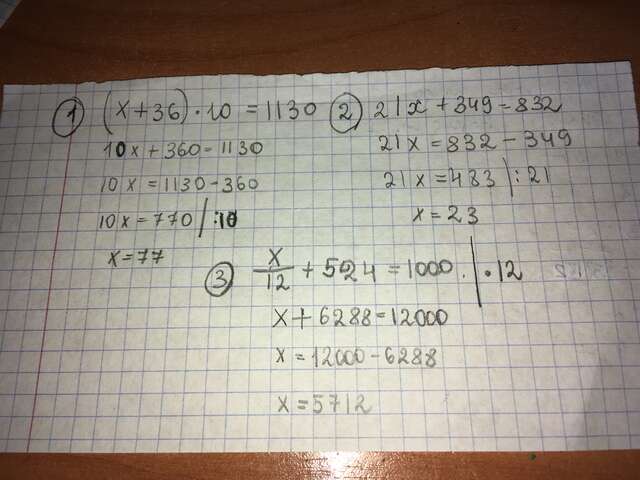 ① (x+36)·10=1130
10x+360=1130
10x=1130-360
10x=770 |:10
x=77
② 21x+349=832
21x=832-349
21x=483 |:21
x=23
③ x/12 + 524=1000. |·12
x+6288=12000
x=12000-6288
x=5712